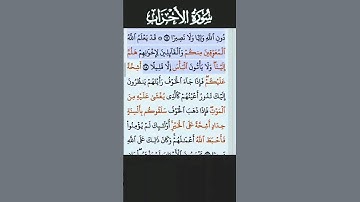 سورة الأحزاب
دُونِ ٱللَّهِ وَلِيًّا وَلَا نَصِيرًا ۝ قَدْ يَعْلَمُ ٱللَّهُ
ٱلْمُعَوِّقِينَ مِنكُمْ وَٱلْقَآئِلِينَ لِإِخْوَٰنِهِمْ هَلُمَّ
إِلَيْنَا وَلَا يَأْتُونَ ٱلْبَأْسَ إِلَّا قَلِيلًا ۝ أَشِحَّةً
عَلَيْكُمْ فَإِذَا جَآءَ ٱلْخَوْفُ رَأَيْتَهُمْ يَنظُرُونَ
إِلَيْكَ تَدُورُ أَعْيُنُهُمْ كَٱلَّذِى يُغْشَىٰ عَلَيْهِ مِنَ
ٱلْمَوْتِ فَإِذَا ذَهَبَ ٱلْخَوْفُ سَلَقُوكُم بِأَلْسِنَةٍ
حِدَادٍ أَشِحَّةً عَلَى ٱلْخَيْرِ أُو۟لَـٰٓئِكَ لَمْ يُؤْمِنُوا۟
فَأَحْبَطَ ٱللَّهُ أَعْمَـٰلَهُمْ وَكَانَ ذَٰلِكَ عَلَى ٱللَّهِ